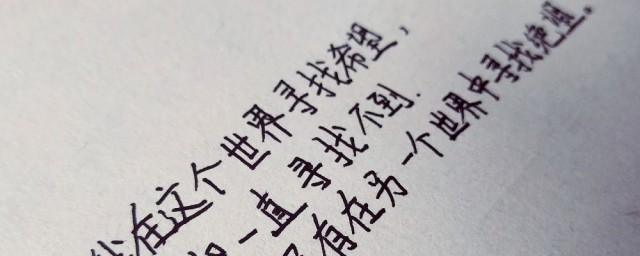 我在这个世界寻找希望,
一直寻找不到.
有在另一个世界中寻找绝望。